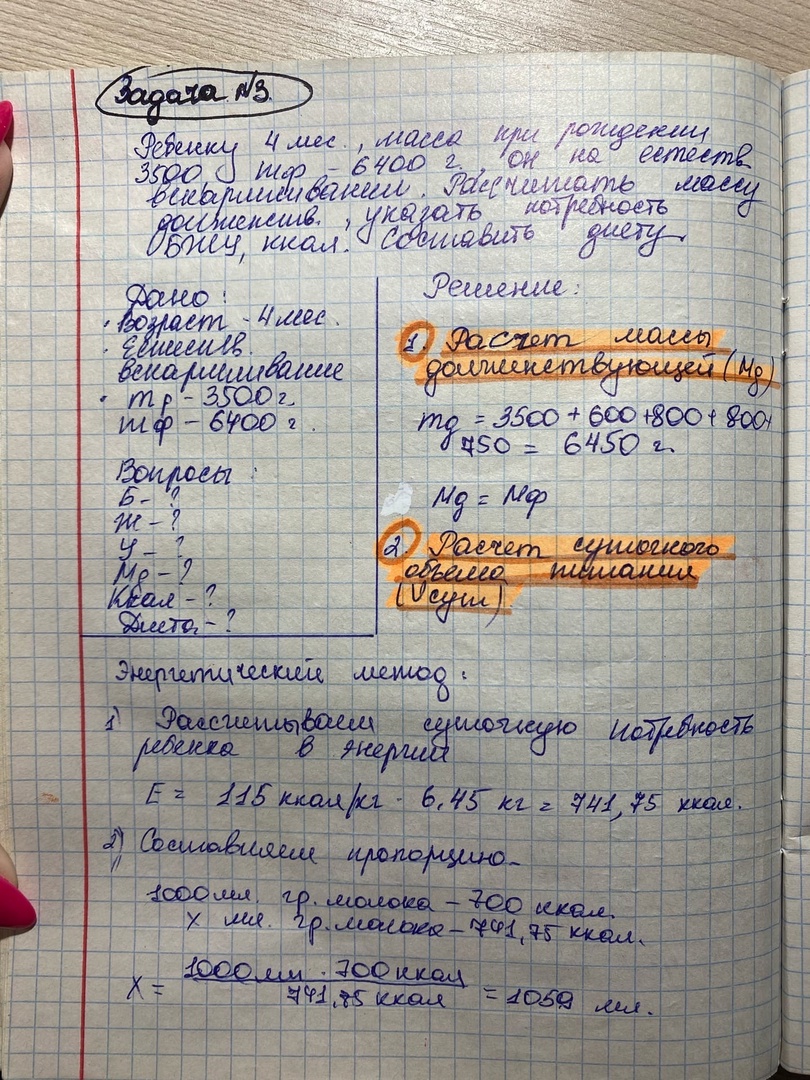 Задача №3.
Ребенку 4 мес., масса при рождении
3500, mф - 6400 г, он на естеств.
вскармливании. Рассчитать массу
долженств., указать потребность
БЖУ, ккал. Составить диету.
Дано:
· Возраст - 4 мес.
· Естеств.
вскармливание
· mр - 3500 г.
mф - 6400 г.
Вопросы:
Б - ?
Ж - ?
У - ?
Мд - ?
Ккал - ?
Диета - ?
Решение:
1. Расчет массы
долженствующей (Мд)
mд = 3500 + 600 + 800 + 800 +
750 = 6450 г.
Мд = Мф
2. Расчет суточного
объема питания
(Vсут)
Энергетический метод:
1) Рассчитываем суточную потребность
ребенка в энергии
E = 115 ккал/кг · 6,45 кг = 741,75 ккал.
2) Составляем пропорцию
1000 мл. гр. молока - 700 ккал.
X мл. гр. молока - 741,75 ккал.
X = 1000 мл · 700 ккал
741,75 ккал = 1059 мл.